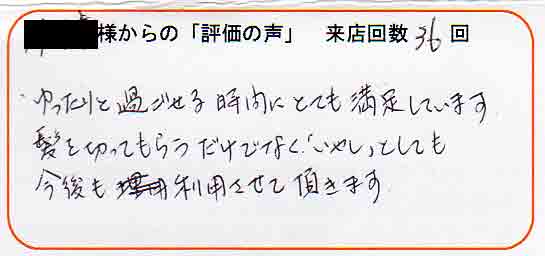 様からの「評価の声」　来店回数36回
ゆったりと過ごせる時間にとても満足しています
髪を切ってもらうだけでなく「いやし」としても
今後も利用させて頂きます